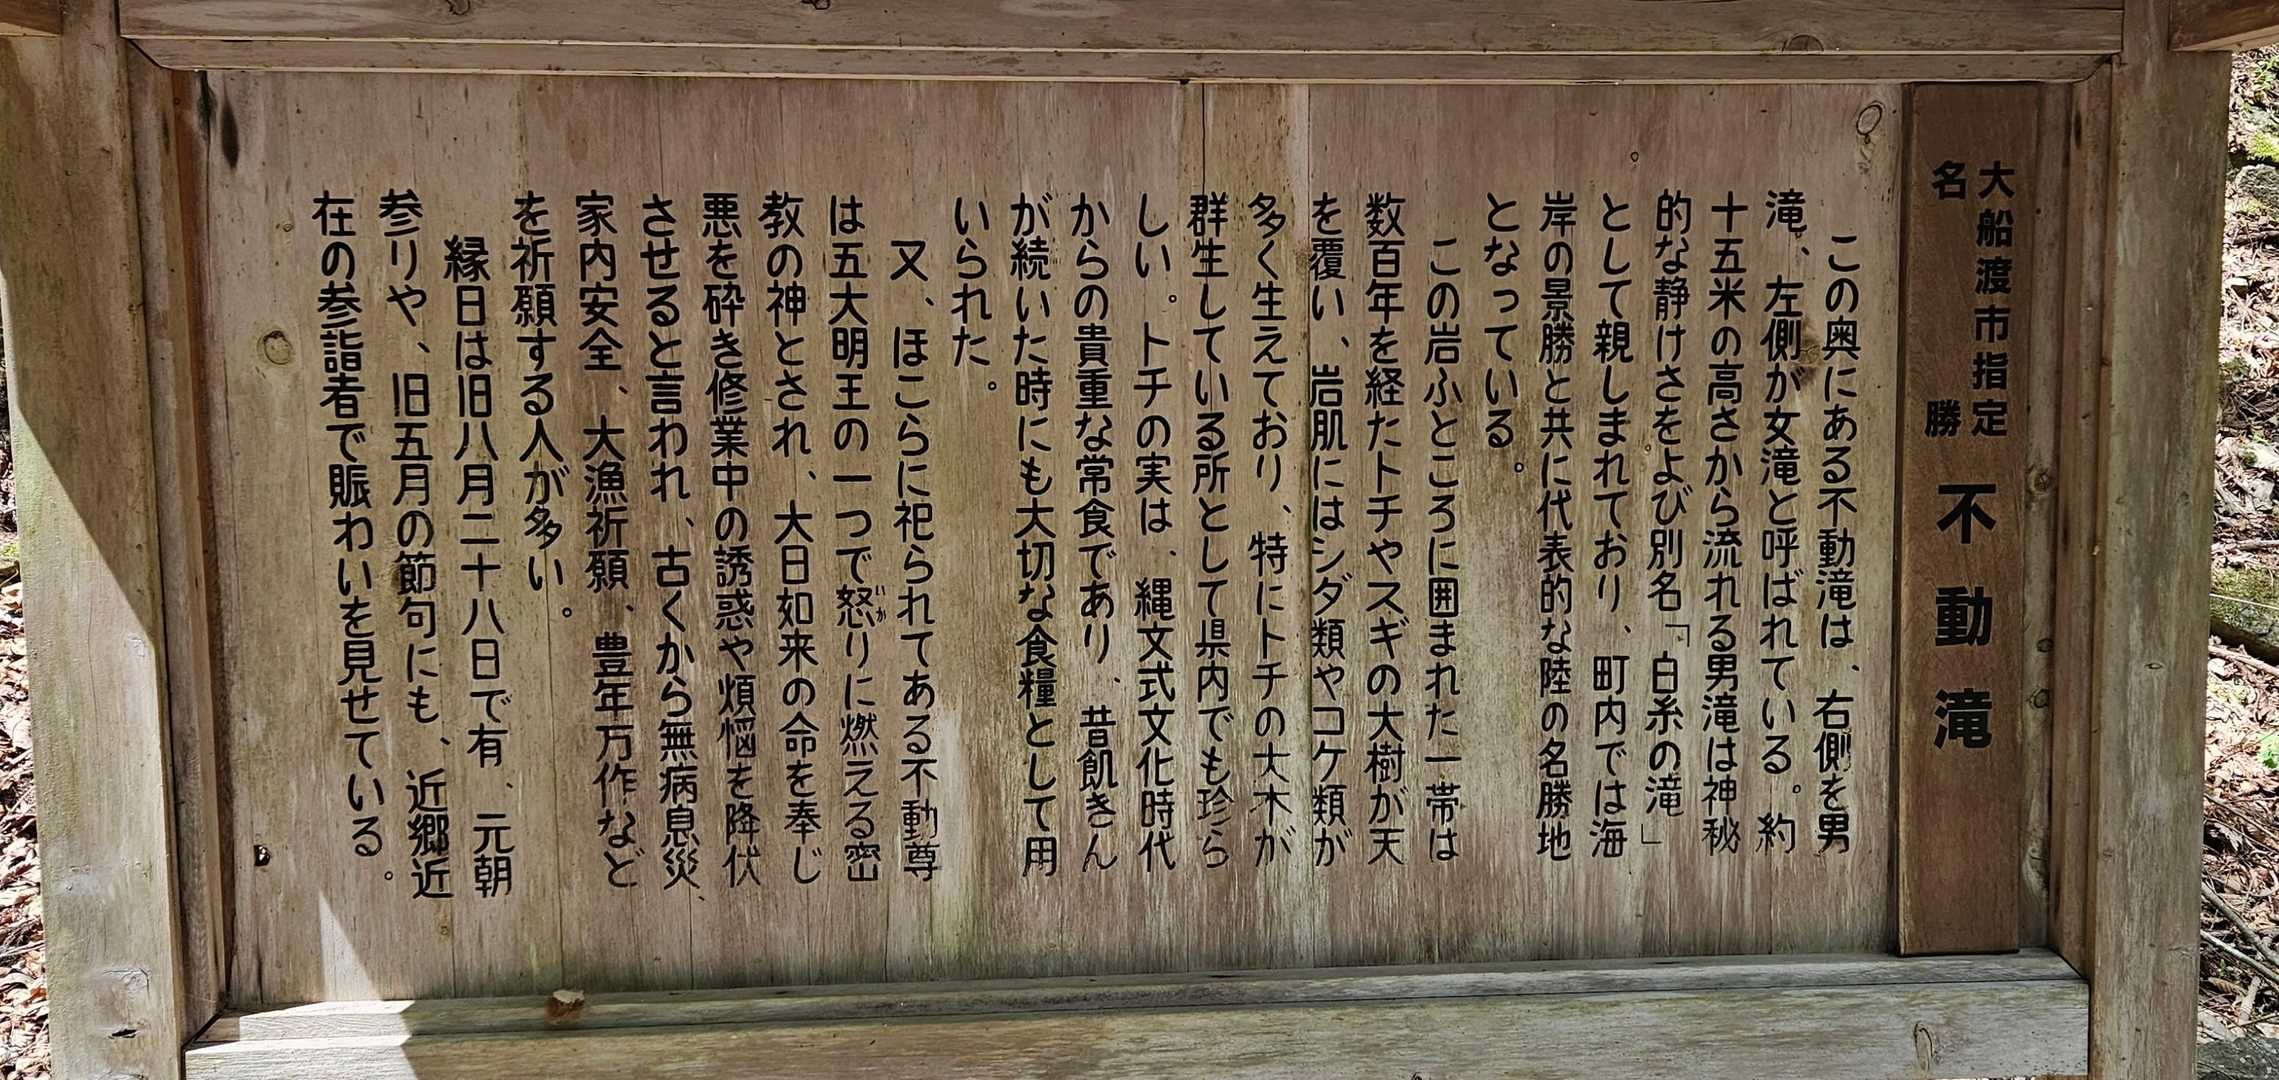 大船渡市指定
名勝
不動滝
この奥にある不動滝は、右側を男
滝、左側が女滝と呼ばれている。約
十五米の高さから流れる男滝は神秘
的な静けさをよび別名「白糸の滝」
として親しまれており、町内では海
岸の景勝と共に代表的な陸の名勝地
となっている。
この岩ふところに囲まれた一帯は
数百年を経たトチやスギの大樹が天
を覆い、岩肌にはシダ類やコケ類が
多く生えており、特にトチの大木が
群生している所として県内でも珍ら
しい。トチの実は、縄文式文化時代
からの貴重な常食であり、昔飢きん
が続いた時にも大切な食糧として用
いられた。
又、ほこらに祀られてある不動尊
は五大明王の一つで怒りに燃える密
いか
教の神とされ、大日如来の命を奉じ
悪を砕き修業中の誘惑や煩悩を降伏
させると言われ、古くから無病息災、
家内安全、大漁祈願、豊年万作など
を祈願する人が多い。
縁日は旧八月二十八日で有、元朝
参りや、旧五月の節句にも、近郷近
在の参詣者で賑わいを見せている。